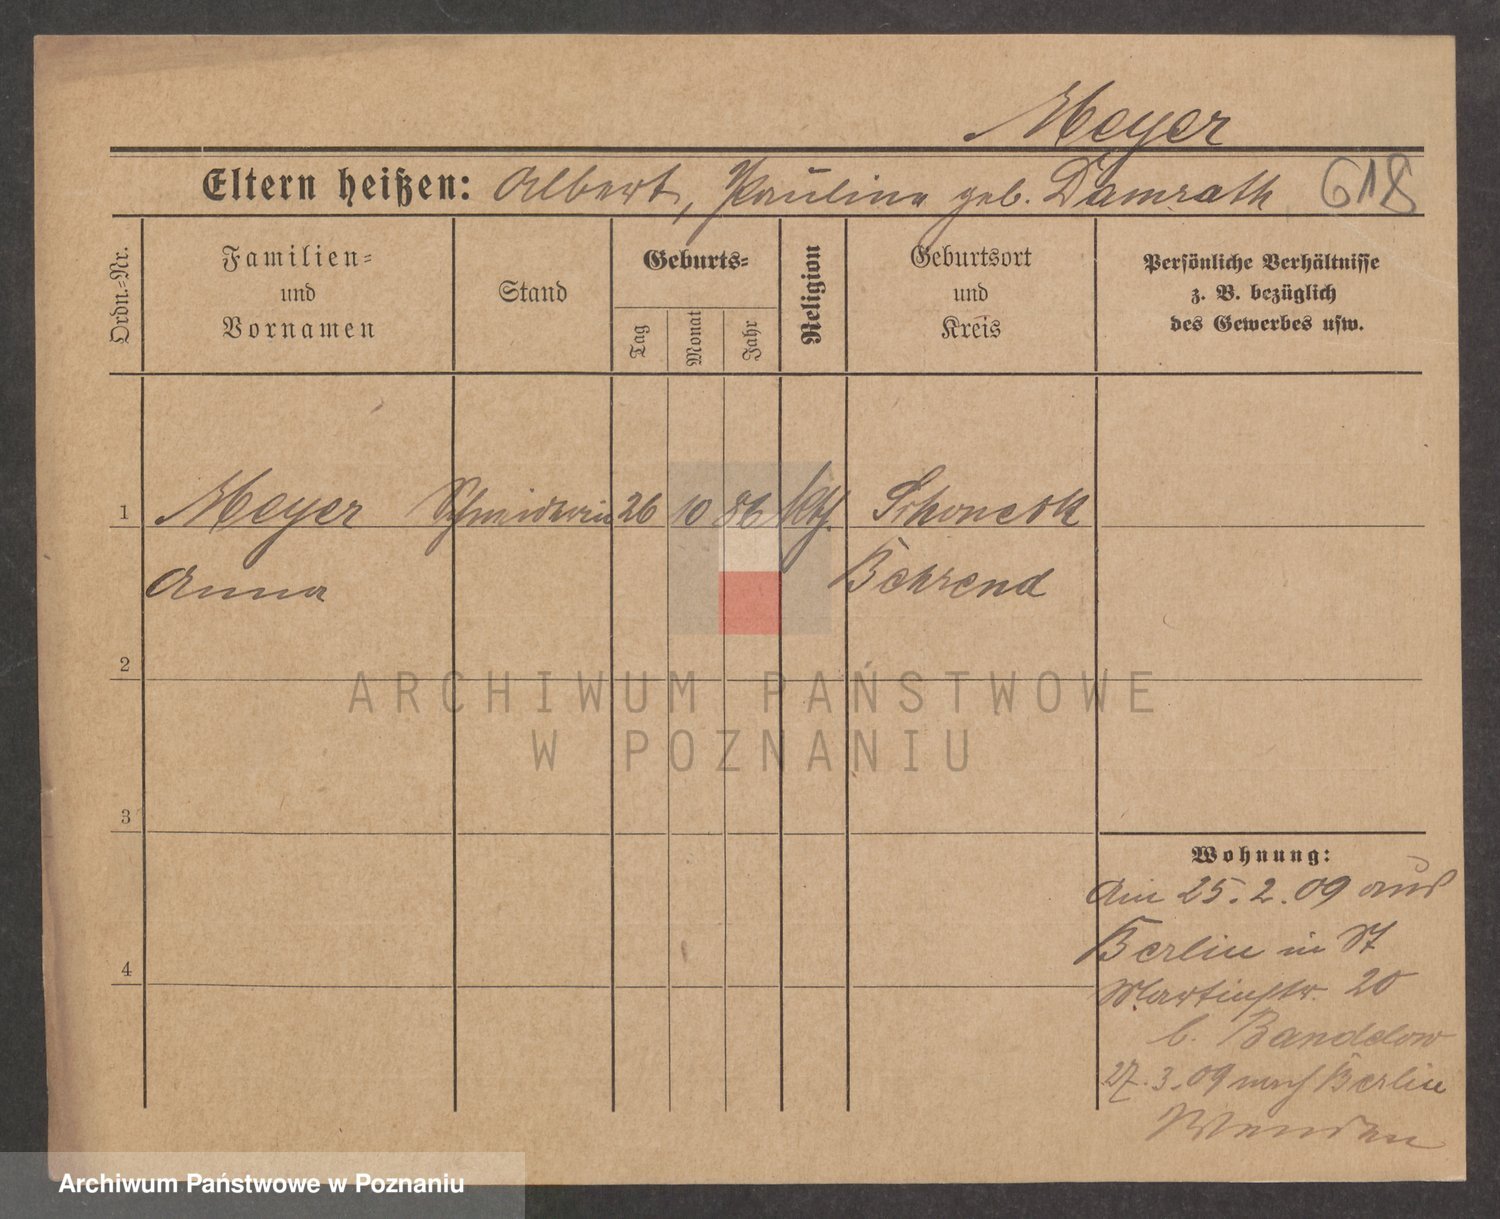 Meyer
Eltern heißen: Albert, Pauline geb. Damrath 618
Ordn.-Nr.
Familien-
und
Vornamen
Stand
Geburts-
Tag
Monat
Jahr
Religion
Geburtsort
und
Kreis
Persönliche Verhältnisse
z. B. bezüglich
des Gewerbes usw.
1 Meyer Schneiderin 26 10 86 kth. Schoneck
Anna Behrend
2
3
4
Wohnung:
Am 25.2.09 aus
Berlin in St
Martinstr. 20
b. Bandelow
27.3.09 nach Berlin
ARCHIWUM PAŃSTWOWE
W POZNANIU
Archiwum Państwowe w Poznaniu